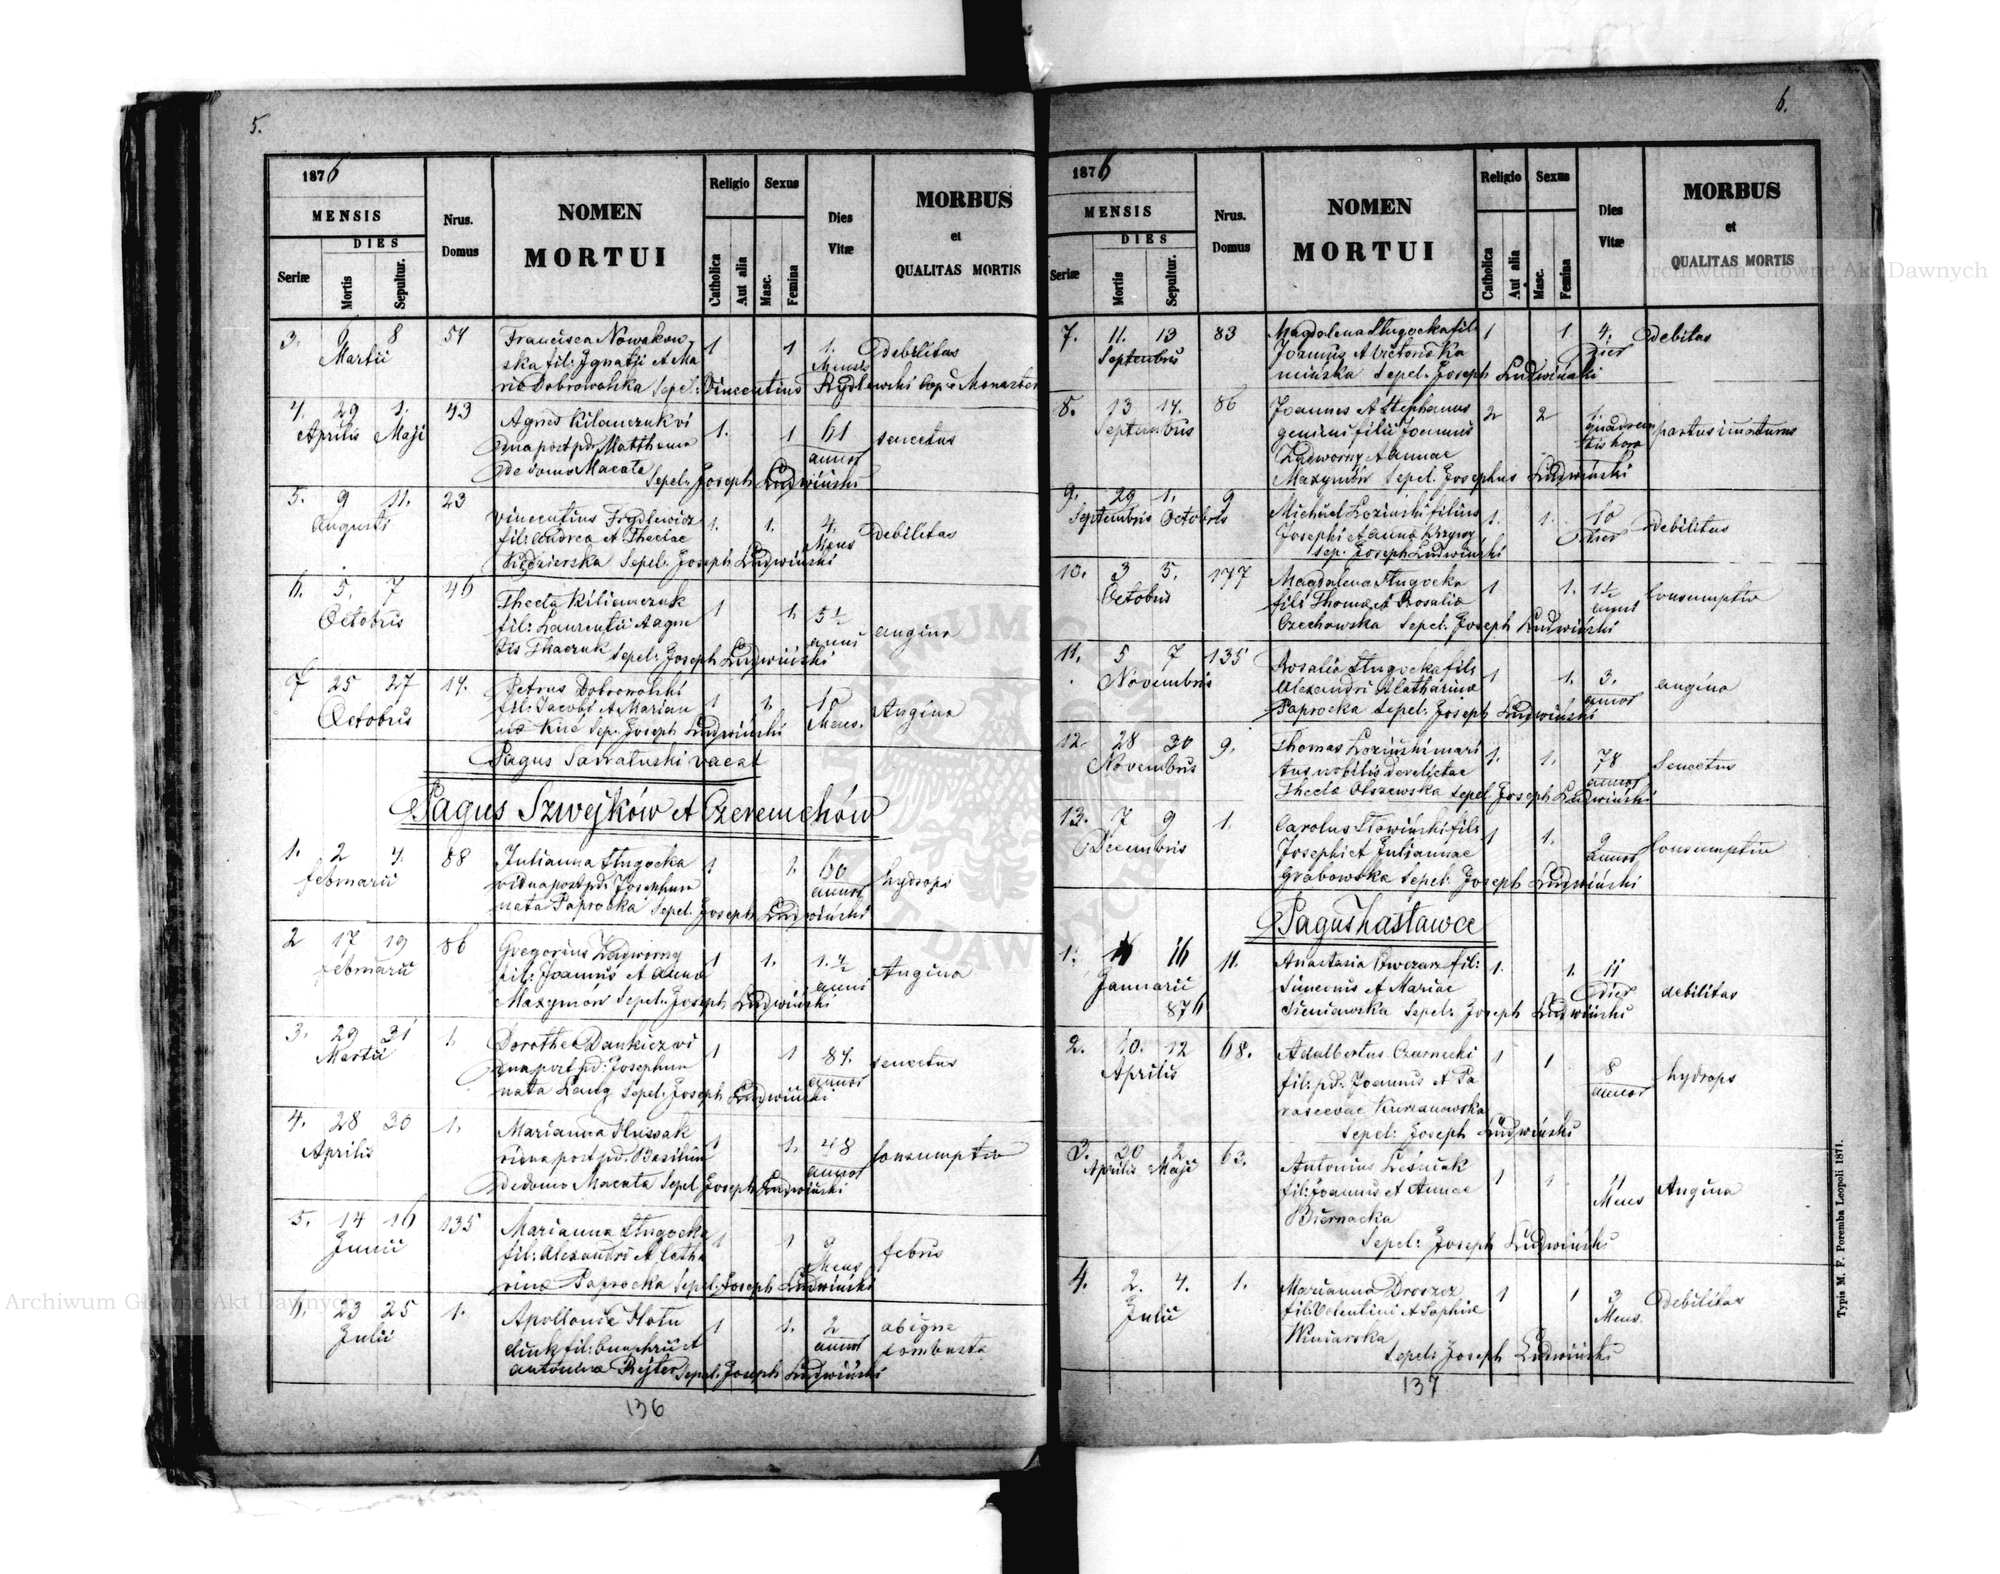 5.
1876
MENSIS
DIES
Seriæ
Mortis
Sepultur.
Nrus.
Domus
NOMEN
MORTUI
Religio
Catholica
Aut alia
Sexus
Masc.
Femina
Dies
Vitæ
MORBUS
et
QUALITAS MORTIS
3. 6 8 54 Francisca Nowakow 1 1 1. debilitas
Martii ska fil: Ignatii et Ma Mensis
ria Dobrowolska Sepel: Vincentius Kydlewski
4. 29 1. 43 Agnes Kilanczuk vi 1. 1 61 senectus
Aprilis Maji dua post pd. Mattheum annos
de domo Macata Sepel: Joseph Ludwiński
5. 9 11. 23 Vincentius Frydlewicz 1. 1. 4. debilitas
Augusti fil: Andrea et Theclae Mens
Kędzierska Sepel: Joseph Ludwiński
6. 5. 7 46 Thecla Kilianczuk 1 1. 5½ angina
Octobris fil: Laurentii et Agne anni
tis Tkaczuk Sepel: Joseph Ludwiński
7 25 27 14. Petrus Dobrowolski 1 1. 10 Angina
Octobris fil: Jacobi et Marian Mens.
na Kuć Sep. Joseph Ludwiński
Pagus Sawaluski vacat
Pagus Szwejków et Czeremchów
1. 2 4. 88 Julianna Długocka 1 1. 60 hydrops
februarii vidua post pd. Josephum annos
nata Paprocka Sepel: Joseph Ludwiński
2 17 19 86 Gregorius Zadworny 1 1. 1.½ Angina
februarii fil: Joannis et Anna anni
Maxymów Sepel: Joseph Ludwiński
3. 29 31 1. Dorothe Dankiez vi 1 1 84. senectus
Martii dua post pd: Josephum annos
nata Lang Sepel: Joseph Ludwiński
4. 28 30 1. Marianna Hussak 1 1. 48 Consumptio
Aprilis vidua post pd. Basilium annos
de domo Macata Sepel: Joseph Ludwiński
5. 14 16 135 Marianna Długocka 1 1 9 febris
Junii fil: Alexandri et Catha Mens
rina Paprocka Sepel: Joseph Ludwiński
6. 23 25 1. Apollonia Hotu 1 1. 2 ab igne
Julii fil: Onuphrii et annos combusta
Antonina Rejter Sepel: Joseph Ludwiński
136
6.
1876
MENSIS
DIES
Seriæ
Mortis
Sepultur.
Nrus.
Domus
NOMEN
MORTUI
Religio
Catholica
Aut alia
Sexus
Masc.
Femina
Dies
Vitæ
MORBUS
et
QUALITAS MORTIS
7. 11. 13 83 Magdalena Długocka fil: 1 1. 4. debitas
Septembris Joannis et Victoris Ka Dies
mińska Sepel: Joseph Ludwiński
8. 13 14. 86 Joannes et Stephanus 2 2 1. partus imaturus
Septembris gemini filii Joannis quadran
Zadworny et Annae tis hora
Maxymów Sepel: Josephus Ludwiński
9. 29 1. 9 Michael Loziński filius 1. 1. 10 debilitas
Septembris Octobris Josephi et Anna Dies
Sep. Joseph Ludwiński
10. 3 5. 177 Magdalena Długocka 1 1. 1½ Consumptio
Octobris fil: Thoma et Rosalia anni
Czechowska Sepel: Joseph Ludwiński
11. 5 7 135 Rosalia Długocka fil: 1 1. 3. angina
Novembris Alexandri et Catharina annos
Paprocka Sepel: Joseph Ludwiński
12. 28 30 9. Thomas Loziński mari 1. 1. 78 Senectus
Novembris tus nobilis derelictae annos
Thecla Olszewska Sepel: Joseph Ludwiński
13. 7 9 1. Carolus Słowiński fil: 1 1. 9 Consumptio
Decembris Josephi et Juliannae annos
Grabowska Sepel: Joseph Ludwiński
Pagus hastawce
1. 16 11. Anastasia Owczarz fil: 1. 1. 11 debilitas
Januarii Simeonis et Mariae Dies
876 Sieniawska Sepel: Joseph Ludwiński
2. 10. 12 68. Adalbertus Czarnecki 1 1 8 hydrops
Aprilis fil: pd. Joannis et Pa annos
rascevae Kurzanowska
Sepel: Joseph Ludwiński
3. 30 2 63. Antonius Leśniak 1 1 11 Angina
Aprilis Maji fil: Joannis et Annae Mens
Biernacka
Sepel: Joseph Ludwiński
4. 2. 4. 1. Marianna Drozcz 1 1 3 debilitas
Julii fil: Valentini et Sophia Mens.
Winiarska
Sepel: Joseph Ludwiński
137
Typis M. F. Poremba Leopoli 1871.
Archiwum Główne Akt Dawnych
Archiwum Główne Akt Dawnych